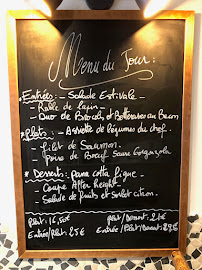 Menu du Jour :
* Entrées : - Salade Estivale -
- Rable de lapin -
- Duo de Brocolis et Betteraves au Bacon
* Plats : - Assiette de légumes du chef -
- Filet de Saumon -
- Poire de Boeuf Sauce Gorgonzola
* Desserts : panna cotta Figue -
- Coupe After height -
- Salade de fruits et Sorbet citron -
Plat : 16,50€ plat / Dessert 21€
Entrée/plat : 25€ Entrée / Plat / Dessert :